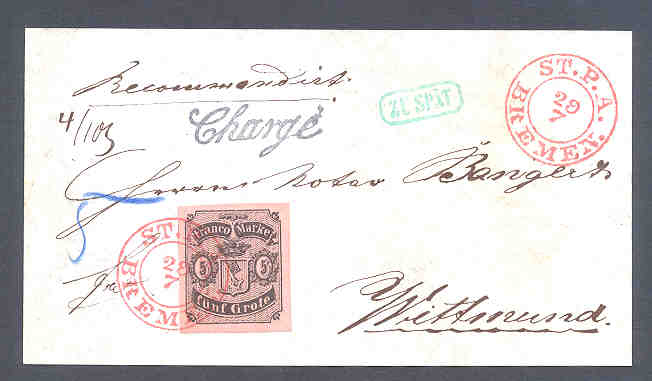 Recommandirt.
4/103
Chargé
ZU SPÄT
ST. P. A.
29
7
BREMEN.
Herrn Notar Bangert
ST.
28
7
BREM
Franco Marke
5 5
fünf Grote
Wittmund.